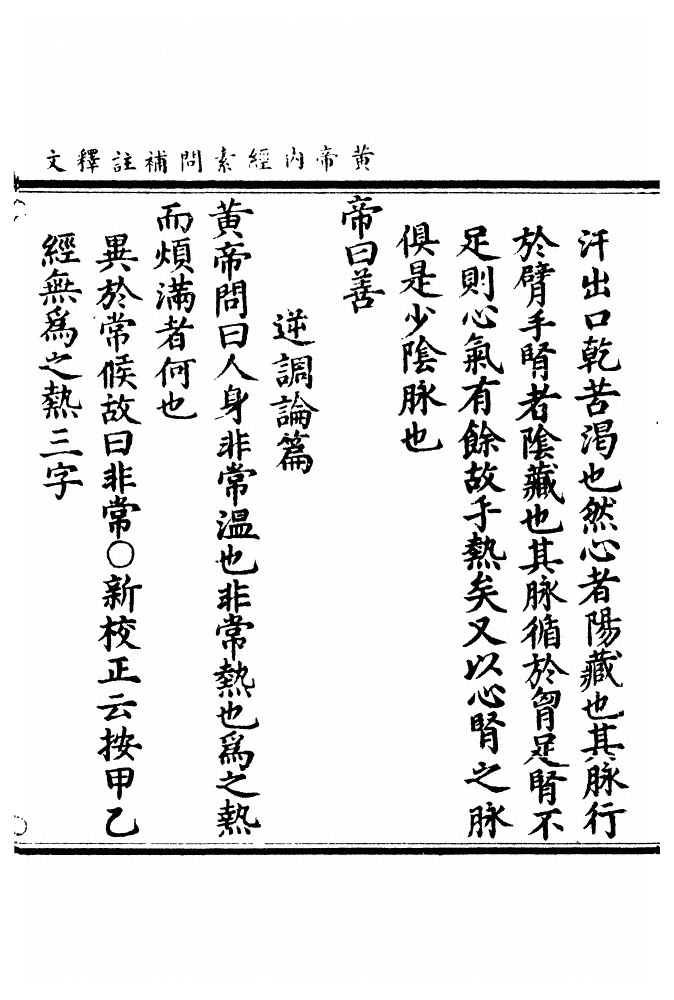 黄帝內經素問補註釋文
汗出口乾苦渴也然心者陽藏也其脉行
於臂手腎者陰藏也其脉循於胷足腎不
足則心氣有餘故手熱矣又以心腎之脉
俱是少陰脉也
帝曰善
逆調論篇
黄帝問曰人身非常温也非常熱也爲之熱
而煩滿者何也
異於常候故曰非常○新校正云按甲乙
經無爲之熱三字